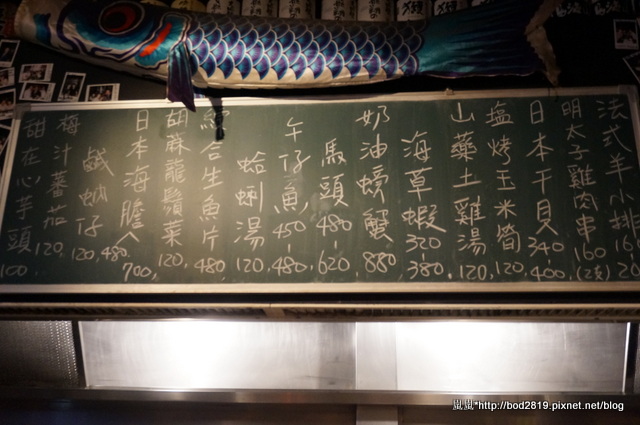 法式羊小排 16
明太子雞肉串 160 (2支)
日本干貝 340 400
鹽烤玉米筍 120.
山藥土雞湯 120.
海草蝦 320 - 380.
奶油螃蟹 880
馬頭 480 - 620.
午仔魚 450 - 480.
蛤蜊湯 120.
綜合生魚片 480.
胡麻龍鬚菜 120.
日本海膽 480. 700.
鹹蜆仔 120.
梅汁蕃茄 120.
甜在心芋頭 100.
嵐嵐*http://bod2819.pixnet.net/blog